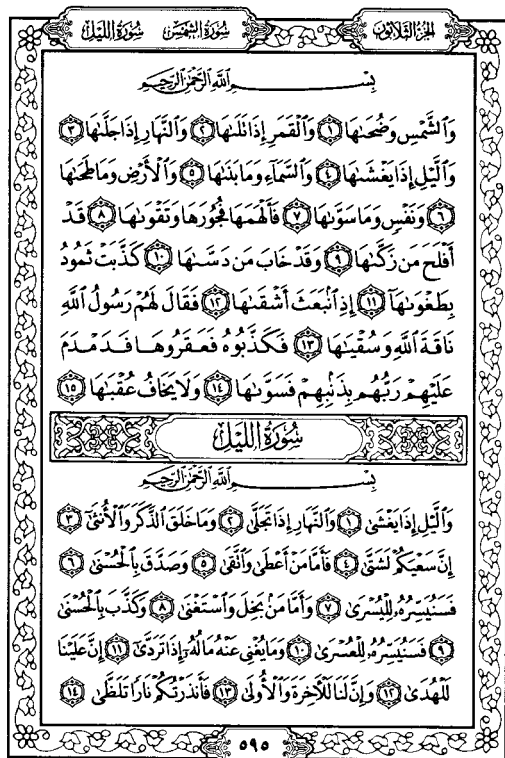 سُورَةُ الشَّمْسِ سُورَةُ اللَّيْلِ الجُزْءُ الثَّلَاثُونَ
بِسْمِ اللَّهِ الرَّحْمَٰنِ الرَّحِيمِ
وَٱلشَّمْسِ وَضُحَىٰهَا ١ وَٱلْقَمَرِ إِذَا تَلَىٰهَا ٢ وَٱلنَّهَارِ إِذَا جَلَّىٰهَا ٣
وَٱلَّيْلِ إِذَا يَغْشَىٰهَا ٤ وَٱلسَّمَآءِ وَمَا بَنَىٰهَا ٥ وَٱلْأَرْضِ وَمَا طَحَىٰهَا
٦ وَنَفْسٍ وَمَا سَوَّىٰهَا ٧ فَأَلْهَمَهَا فُجُورَهَا وَتَقْوَىٰهَا ٨ قَدْ
أَفْلَحَ مَن زَكَّىٰهَا ٩ وَقَدْ خَابَ مَن دَسَّىٰهَا ١٠ كَذَّبَتْ ثَمُودُ
بِطَغْوَىٰهَآ ١١ إِذِ ٱنۢبَعَثَ أَشْقَىٰهَا ١٢ فَقَالَ لَهُمْ رَسُولُ ٱللَّهِ
نَاقَةَ ٱللَّهِ وَسُقْيَٰهَا ١٣ فَكَذَّبُوهُ فَعَقَرُوهَا فَدَمْدَمَ
عَلَيْهِمْ رَبُّهُم بِذَنۢبِهِمْ فَسَوَّىٰهَا ١٤ وَلَا يَخَافُ عُقْبَٰهَا ١٥
سُورَةُ اللَّيْلِ
بِسْمِ اللَّهِ الرَّحْمَٰنِ الرَّحِيمِ
وَٱلَّيْلِ إِذَا يَغْشَىٰ ١ وَٱلنَّهَارِ إِذَا تَجَلَّىٰ ٢ وَمَا خَلَقَ ٱلذَّكَرَ وَٱلْأُنثَىٰٓ ٣
إِنَّ سَعْيَكُمْ لَشَتَّىٰ ٤ فَأَمَّا مَنْ أَعْطَىٰ وَٱتَّقَىٰ ٥ وَصَدَّقَ بِٱلْحُسْنَىٰ ٦
فَسَنُيَسِّرُهُۥ لِلْيُسْرَىٰ ٧ وَأَمَّا مَنۢ بَخِلَ وَٱسْتَغْنَىٰ ٨ وَكَذَّبَ بِٱلْحُسْنَىٰ
٩ فَسَنُيَسِّرُهُۥ لِلْعُسْرَىٰ ١٠ وَمَا يُغْنِى عَنْهُ مَالُهُۥٓ إِذَا تَرَدَّىٰٓ ١١ إِنَّ عَلَيْنَا
لَلْهُدَىٰ ١٢ وَإِنَّ لَنَا لَلْءَاخِرَةَ وَٱلْأُولَىٰ ١٣ فَأَنذَرْتُكُمْ نَارًا تَلَظَّىٰ ١٤
٥٩٥